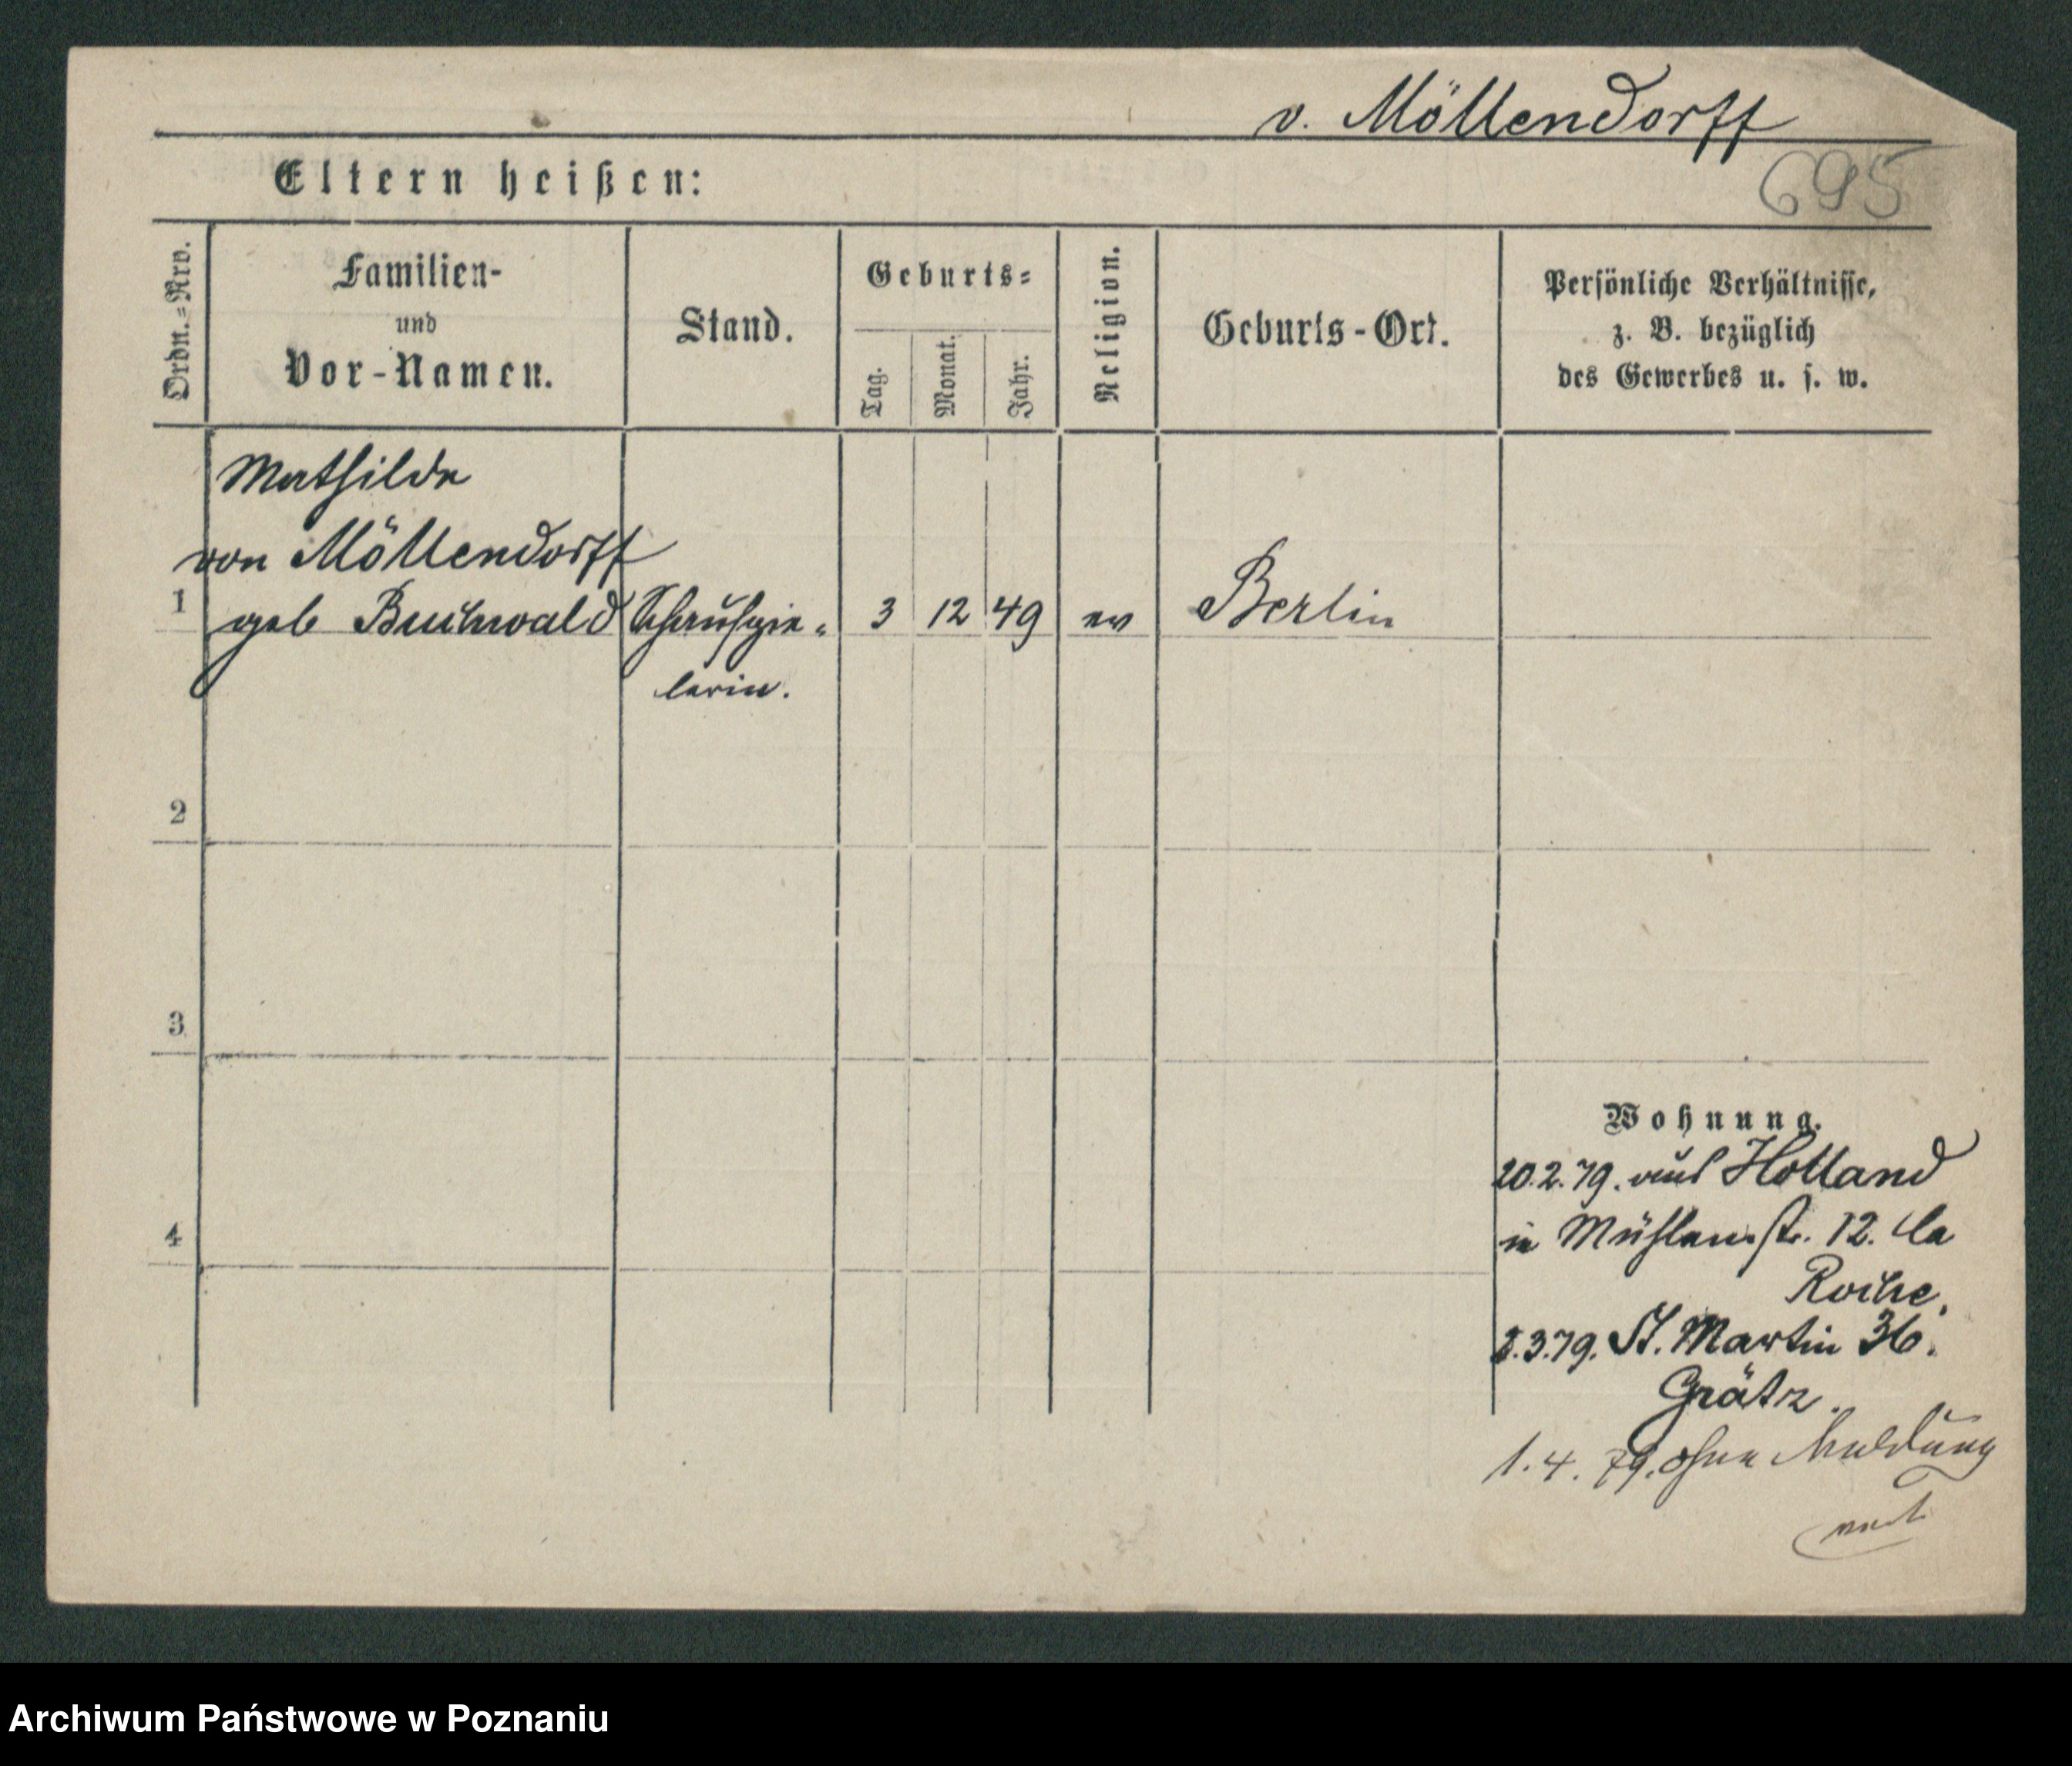 v. Möllendorff
695
Eltern heißen:
Ordn.-Nro.
Familien-
und
Vor-Namen.
Stand.
Geburts-
Tag.
Monat.
Jahr.
Religion.
Geburts-Ort.
Persönliche Verhältnisse,
z. B. bezüglich
des Gewerbes u. s. w.
Mathilde
von Möllendorff
1 geb Buchwald Schauspie- 3 12 49 ev Berlin
lerin.
2
3
4
Wohnung.
20.2.79. aus Holland
in Mühlenstr. 12. la
Roche.
3.79. St. Martin 36.
Grätz.
1. 4. 79. ohne Meldung
Archiwum Państwowe w Poznaniu